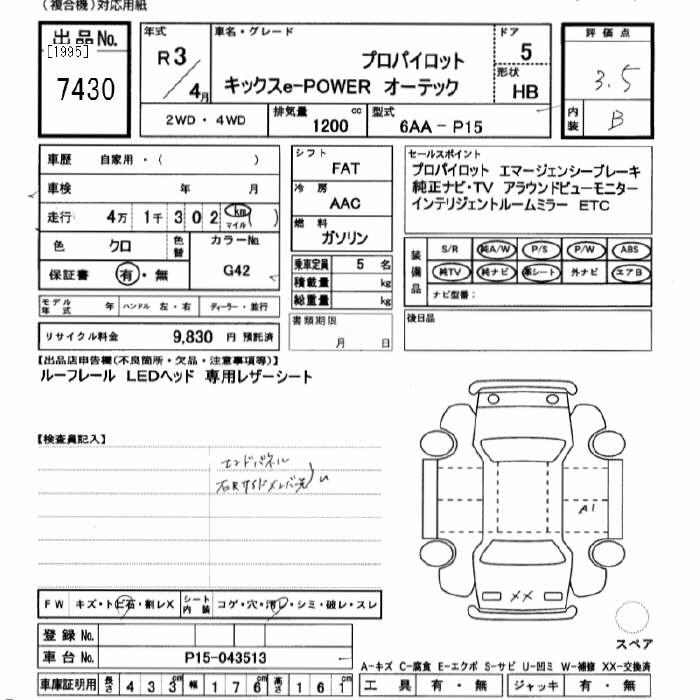 (複合機)対応用紙
出品No.
[1995]
7430
年式
R3/4月
車名・グレード
プロパイロット
キックスe-POWER オーテック
ドア
5
形状
HB
評価点
3.5
内装
B
2WD・4WD
排気量
1200 cc
型式
6AA - P15
車歴 自家用・( )
車検 年 月
走行 4万 1千 3 0 2 km マイル ( )
色 クロ 色替
カラーNo.
G42
保証書 有・無
シフト
FAT
冷房
AAC
燃料
ガソリン
乗車定員 5 名
積載量 kg
総重量 kg
セールスポイント
プロパイロット エマージェンシーブレーキ
純正ナビ・TV アラウンドビューモニター
インテリジェントルームミラー ETC
装備品
S/R 純A/W P/S P/W ABS
純TV 純ナビ 革シート 外ナビ エアB
ナビ型番:
モデル年式 年 ハンドル 左・右 ディーラー・並行
リサイクル料金 9,830 円 預託済
書類期限
月 日
後日品
【出品店申告欄(不良箇所・欠品・注意事項等)】
ルーフレール LEDヘッド 専用レザーシート
【検査員記入】
エンドパネル
右Rサイドメンバー先
A1
XX
FW キズ・トビ石・割レX
シート内装 コゲ・穴・汚レ・シミ・破レ・スレ
登録No.
車台No. P15-043513
車庫証明用 長さ 433cm 幅 176cm 高さ 161cm
スペア
A-キズ C-腐食 E-エクボ S-サビ U-凹ミ W-補修 XX-交換済
工具 有・無 ジャッキ 有・無